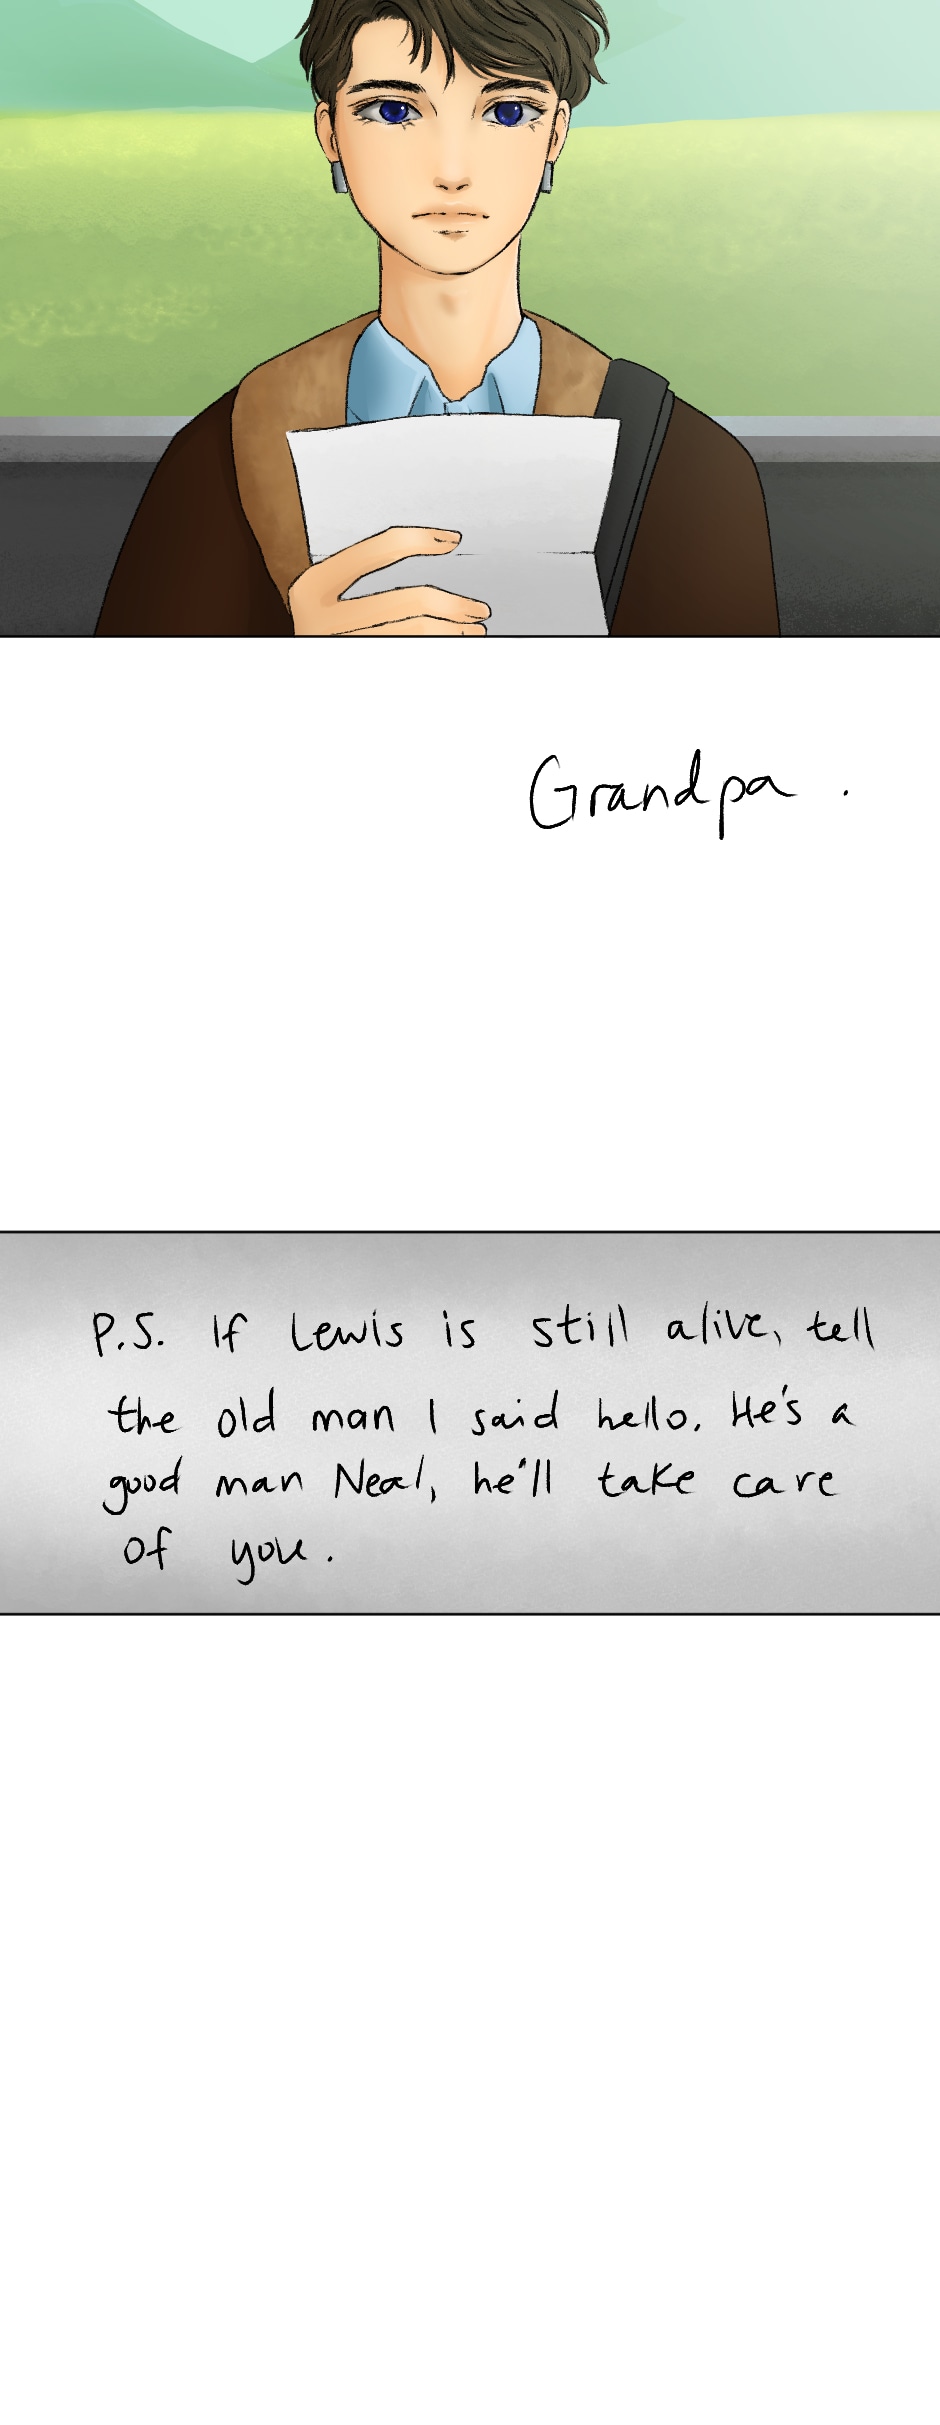 Grandpa.
P.S. If Lewis is still alive, tell
the old man I said hello. He's a
good man Neal, he'll take care
of you.